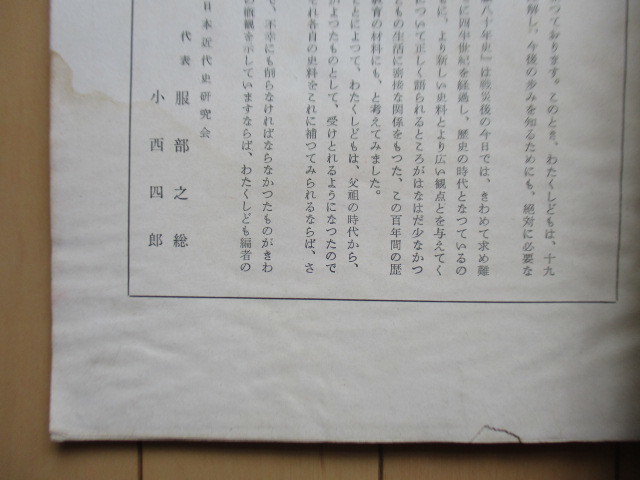 つております。このとき、わたくしどもは、十九
解し、今後の歩みを知るためにも、絶対に必要な
八十年史』は戦災後の今日では、きわめて求め難
に四半世紀を経過し、歴史の時代となつているの
もに、より新しい史料とより広い観点とを与えてく
について正しく語られるところがはなはだ少なかつ
もの生活に密接な関係をもつた、この百年間の歴
教育の材料にも、と考えてみました。
ことによつて、わたくしどもは、父祖の時代から、
がよつたものとして、受けとれるようになつたので
ぞれ各自の史料をこれに補つてみられるならば、さ
で、不幸にも削らなければならなかつたものがきわ
観を示していますならば、わたくしども編者の
日本近代史研究会
代表 服部之総
小西四郎